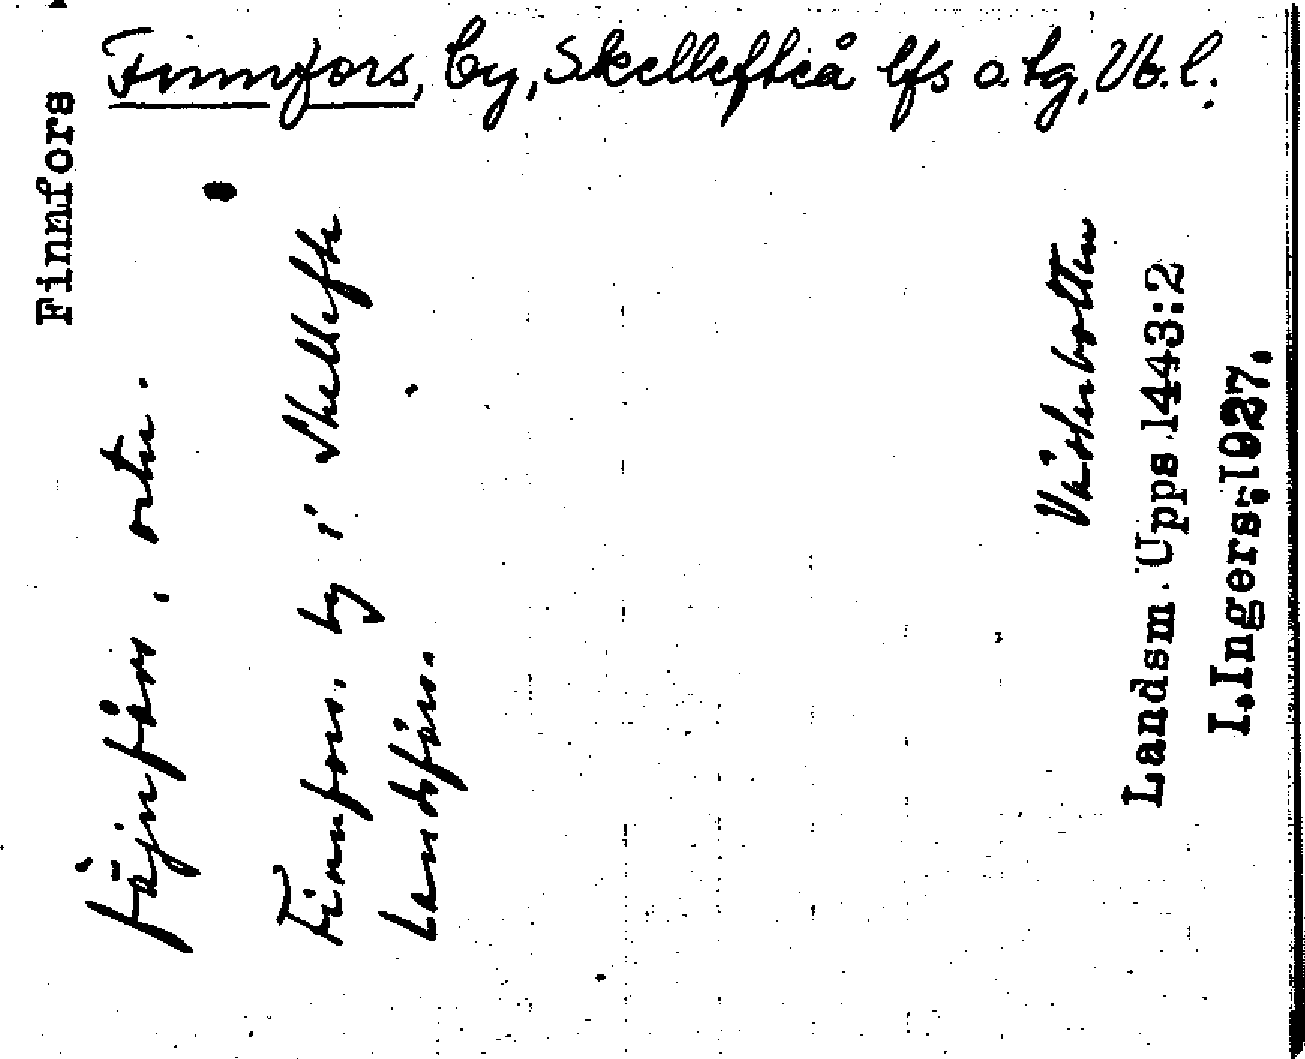 Finnfors, by, Skellefteå lfs o. tg, Vb. l.
Finnfors
fäjnfårs, ortn.
Finnfors, by i Skellefte
landsförs.
Västerbotten
Landsm. Upps.1443:2
I.Ingers.1927.